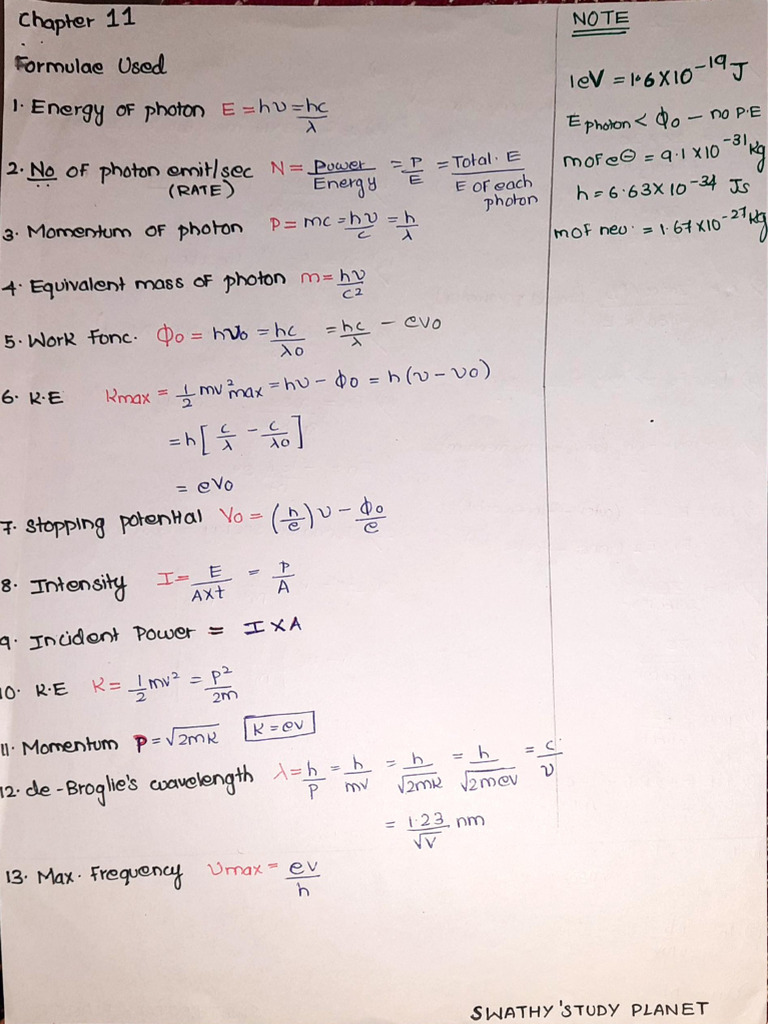 Chapter 11
Formulae Used
1. Energy of photon E = hυ = hc/λ
2. No of photon emit/sec (RATE) N = Power/Energy = P/E = Total. E/E of each photon
3. Momentum of photon P = mc = hυ/c = h/λ
4. Equivalent mass of photon m = hυ/c2
5. Work Fonc. Φo = hυo = hc/λo = hc/λ - evo
6. K.E Kmax = 1/2 mv²max = hυ - Φo = h(υ - υo)
= h[c/λ - c/λo]
= eVo
7. Stopping potential Vo = (h/e)υ - Φo/e
8. Intensity I = E/AXt = P/A
9. Incident Power = I X A
10. K.E K = 1/2 mv² = P²/2m
11. Momentum P = √2mk K = ev
12. de-Broglie's wavelength λ = h/P = h/mv = h/√2mk = h/√2mev = c/υ
= 1.23/√V nm
13. Max. Frequency υmax = ev/h
NOTE
1eV = 1.6X10-19 J
E photon < Φo - no P.E
m of e⊖ = 9.1 X10-31 kg
h = 6.63X10-34 Js
m of neu. = 1.67X10-27 kg
SWATHY'STUDY PLANET